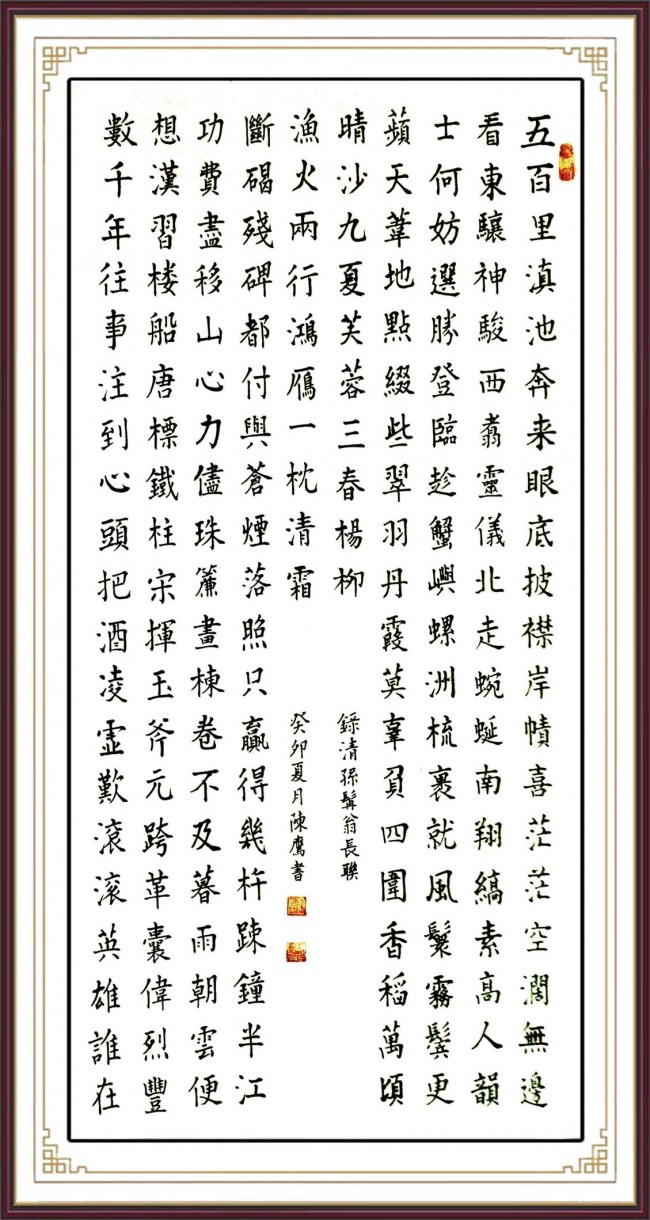 五百里滇池奔来眼底披襟岸幘喜茫茫空濶無邊
看東驤神駿西翥靈儀北走蜿蜒南翔縞素高人韻
士何妨選勝登臨趁蟹嶼螺洲梳裹就風鬟霧鬢更
蘋天葦地點綴些翠羽丹霞莫辜負四圍香稻萬頃
晴沙九夏芙蓉三春楊柳
錄清孫髯翁長聯
數千年往事注到心頭把酒凌虛歎滚滚英雄誰在
想漢習楼船唐標鐵柱宋揮玉斧元跨革囊偉烈豐
功費盡移山心力儘珠簾畫棟卷不及暮雨朝雲便
斷碣殘碑都付與蒼煙落照只贏得幾杵踈鐘半江
漁火兩行鴻鴈一枕清霜
癸卯夏月陳鷹書